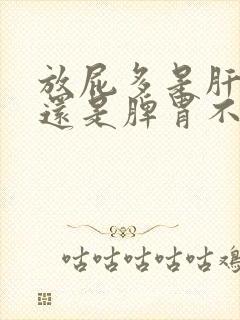 放屁多是肝
還是脾胃不
咕咕咕咕咕雞